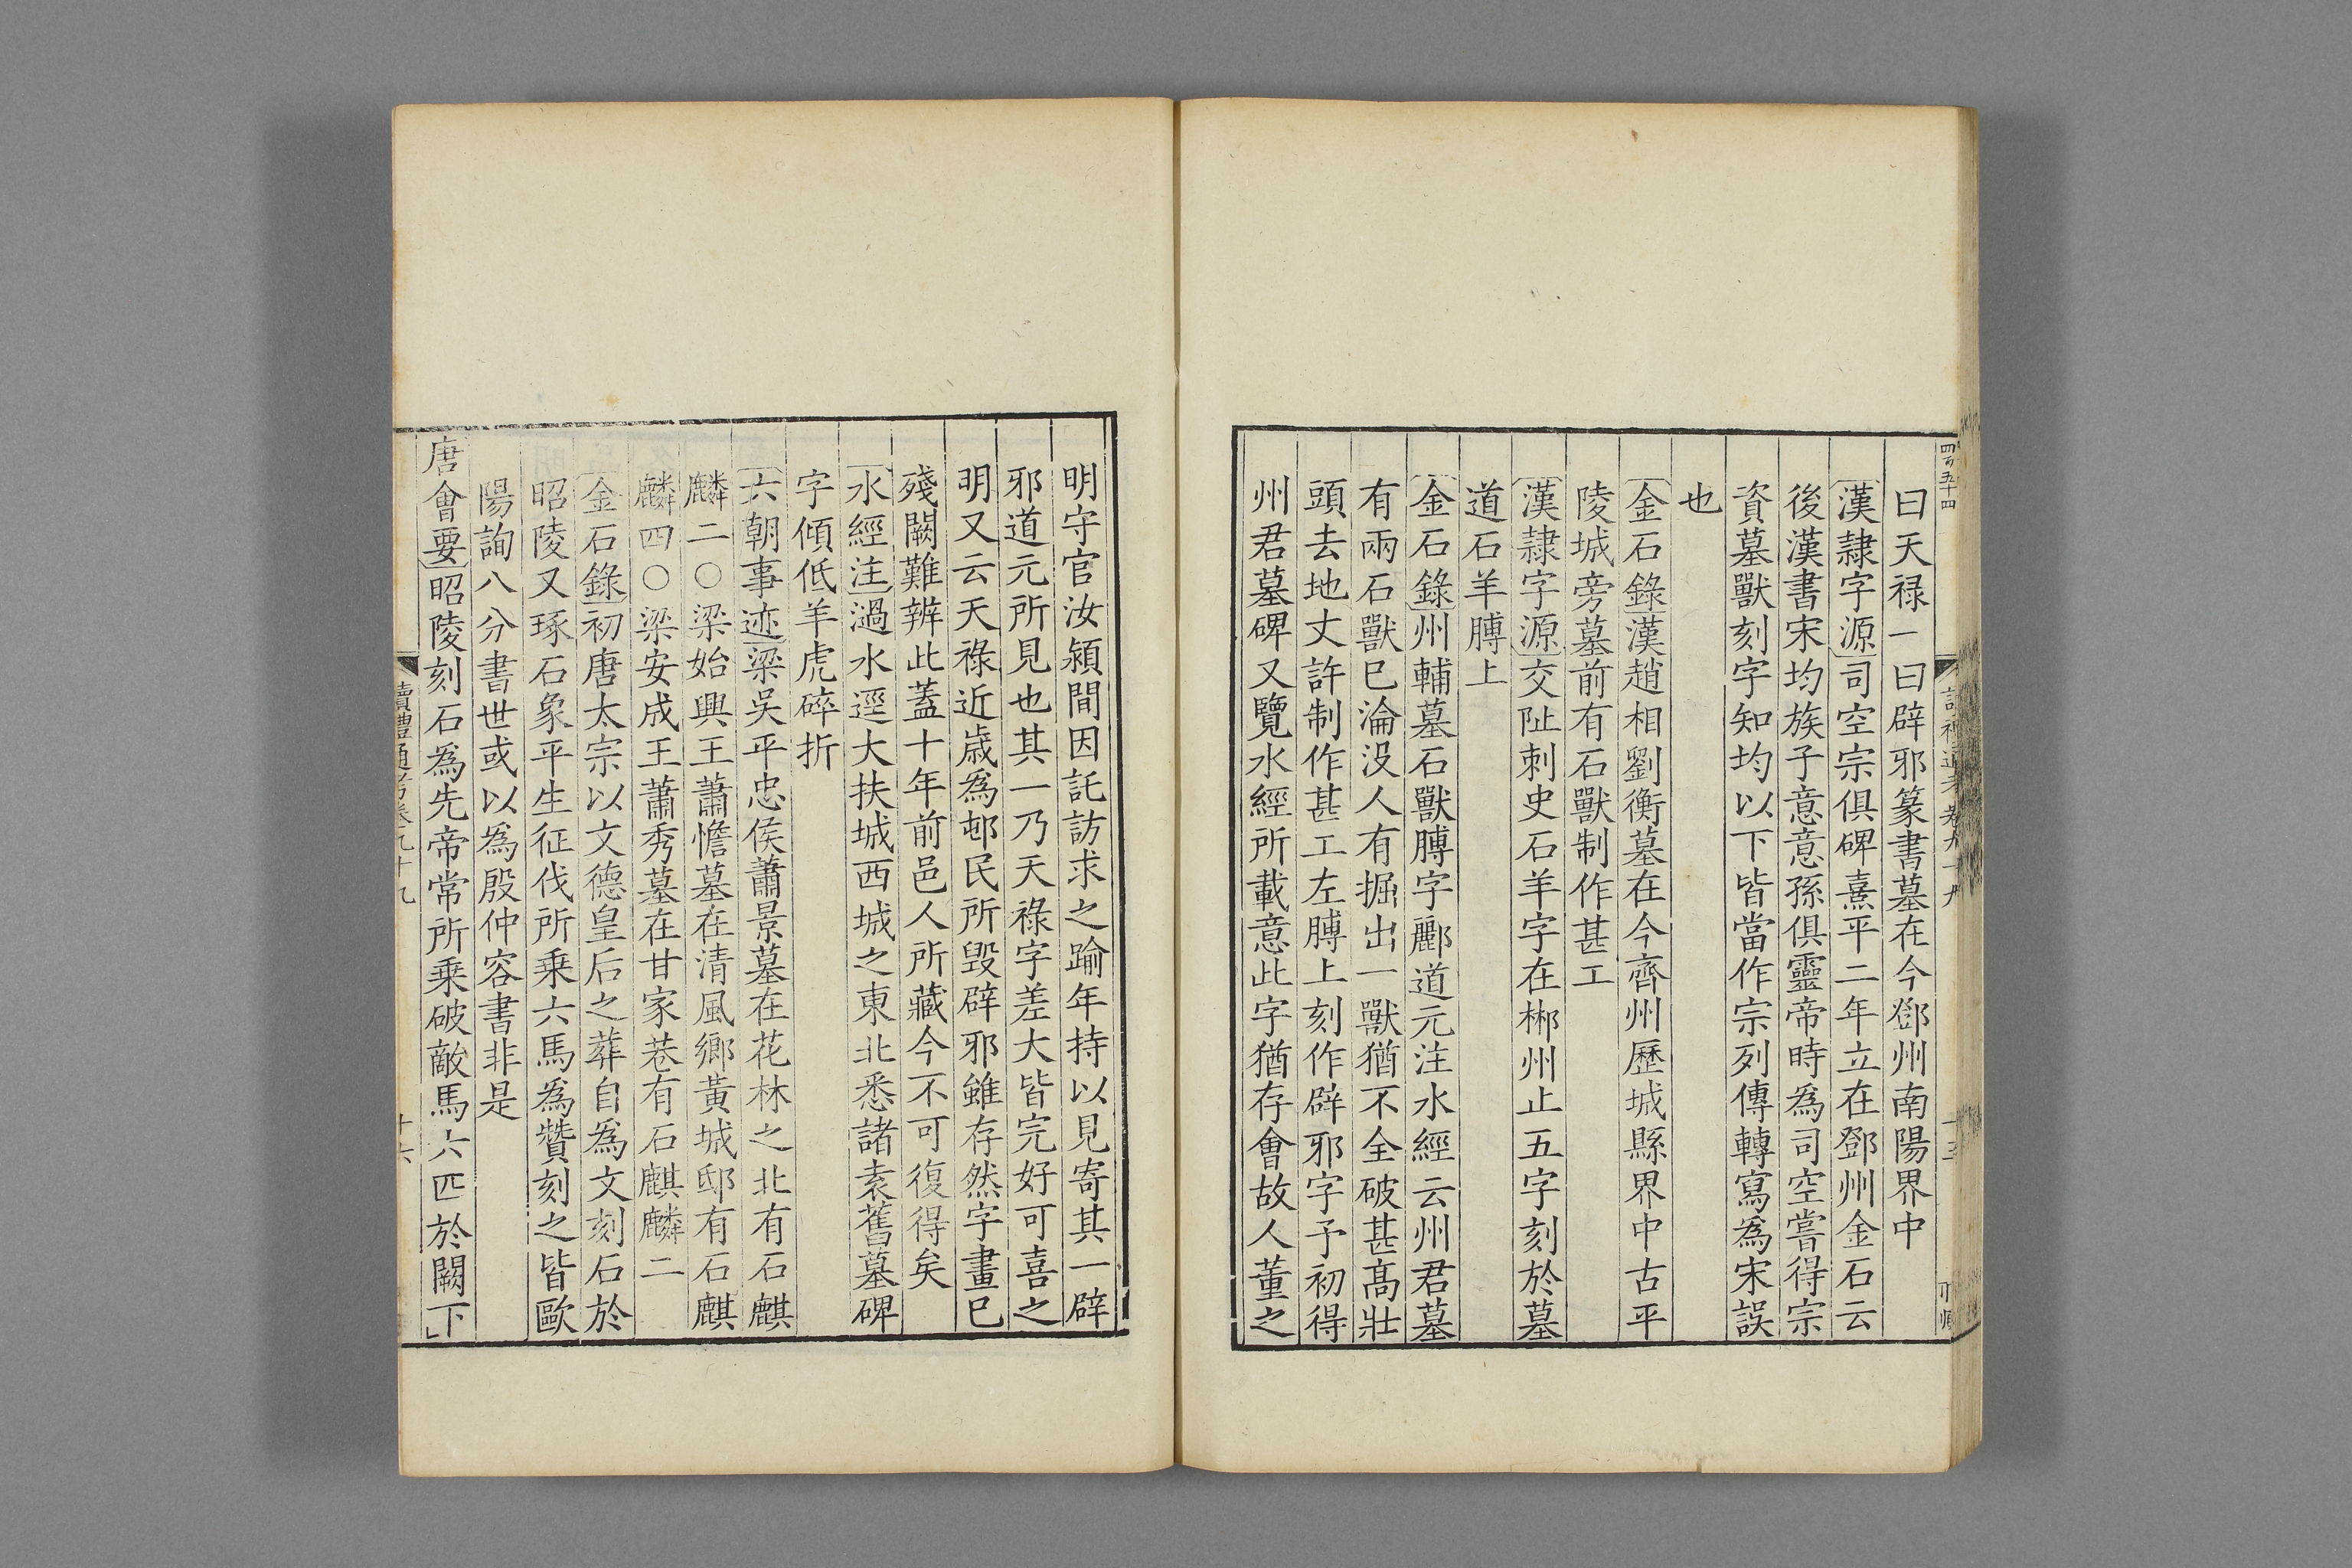 四百五十四
曰天禄一曰辟邪篆書墓在今鄧州南陽界中
漢隷字源司空宗俱碑熹平二年立在鄧州金石云
後漢書宋均族子意意孫俱靈帝時為司空嘗得宗
資墓獸刻字知均以下皆當作宗列傳轉寫為宋誤
也
金石錄漢趙相劉衡墓在今齊州歷城縣界中古平
陵城旁墓前有石獸制作甚工
漢隷字源交阯刺史石羊字在郴州止五字刻於墓
道石羊膊上
金石錄州輔墓石獸膊字酈道元注水經云州君墓
有兩石獸已淪没人有掘出一獸猶不全破甚髙壯
頭去地丈許制作甚工左膊上刻作辟邪字予初得
州君墓碑又覽水經所載意此字猶存會故人董之
明守官汝潁間因託訪求之踰年持以見寄其一辟
邪道元所見也其一乃天祿字差大皆完好可喜之
明又云天祿近歲為邨民所毀辟邪雖存然字畫已
殘闕難辨此蓋十年前邑人所藏今不可復得矣
水經注過水逕大扶城西城之東北悉諸袁舊墓碑
字傾低羊虎碎折
六朝事迹梁吳平忠侯蕭景墓在花林之北有石麒
麟二〇梁始興王蕭憺墓在清風鄉黃城邸有石麒
麟四〇梁安成王蕭秀墓在甘家巷有石麒麟二
金石錄初唐太宗以文德皇后之葬自為文刻石於
昭陵又琢石象平生征伐所乘六馬為贊刻之皆歐
陽詢八分書世或以為殷仲容書非是
唐會要昭陵刻石為先帝常所乘破敵馬六匹於闕下
讀禮通考卷九十九
十六